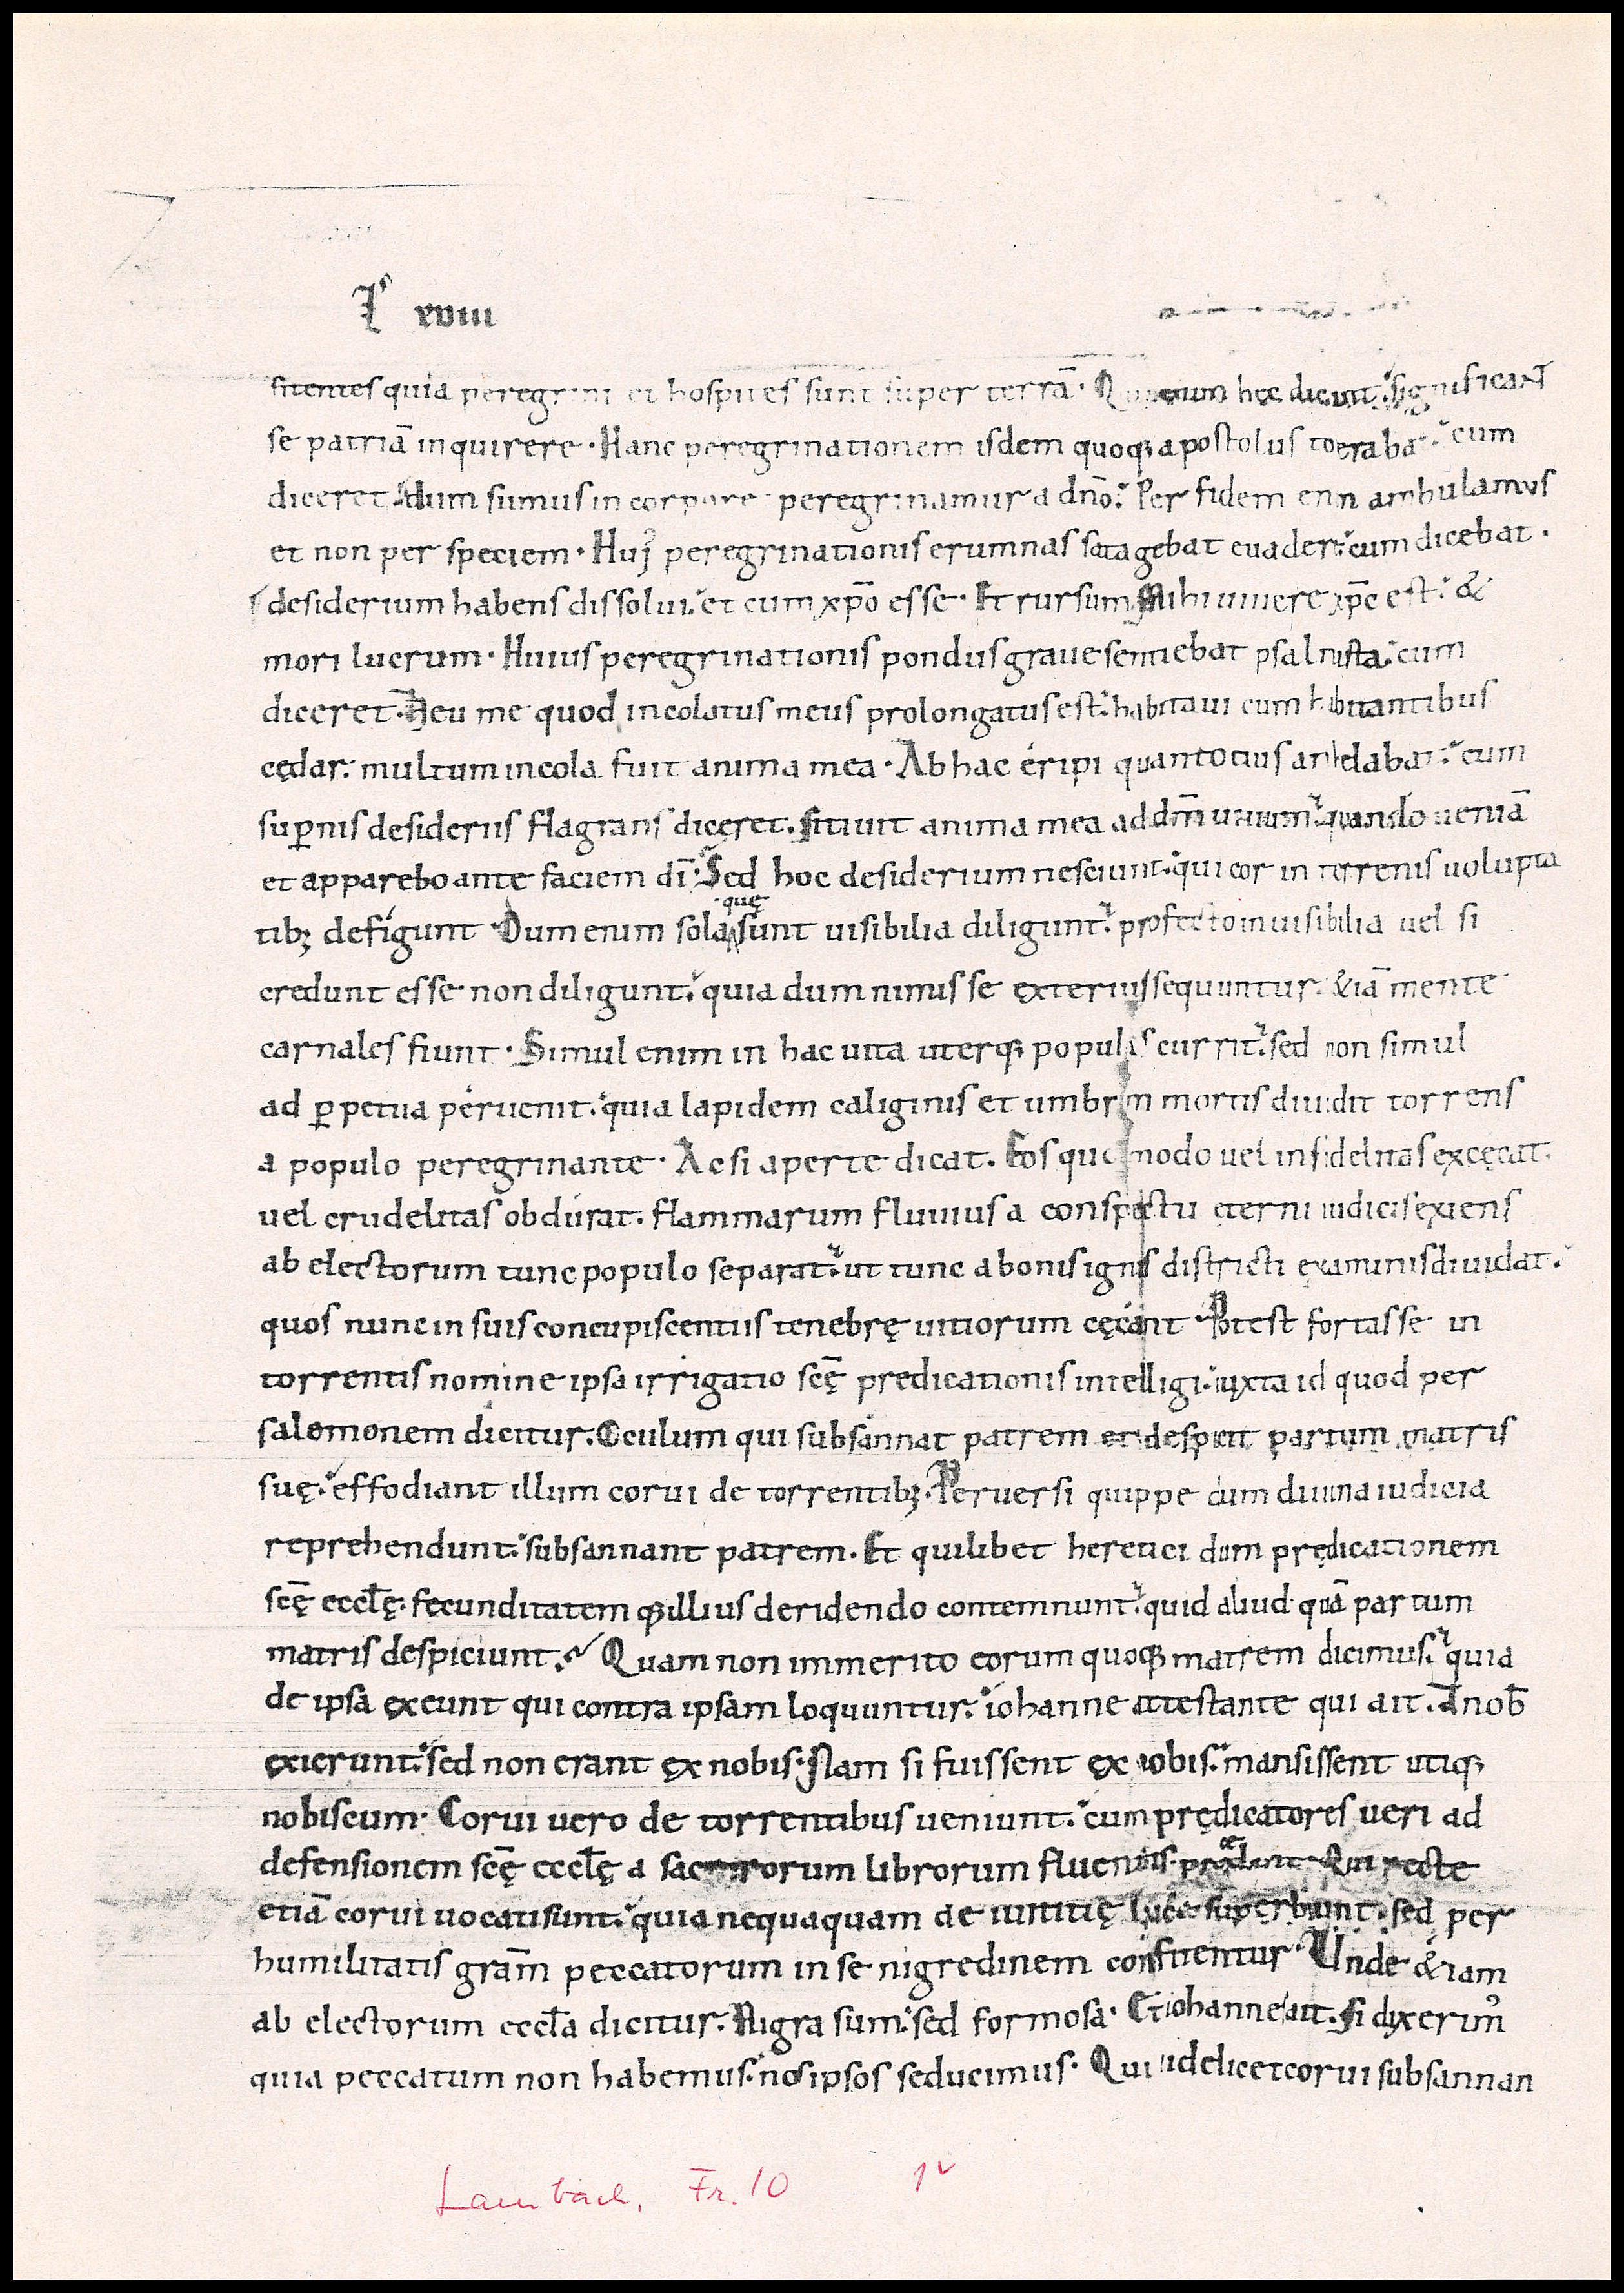 L xviii
sitentes quia peregrini et hospites sunt super terrā · Qui enim hęc dicunt · significant
se patriā inquirere · Hanc peregrinationem isdem quoq; apostolus cum
diceret · dum sumus in corpore peregrinamur a dn̄o · Per fidem enim ambulamus
et non per speciem · Huiꝰ peregrinationis erumnas satagebat euadere · cum dicebat ·
desiderium habens dissolui · et cum xp̄o esse · Et rursum · Mihi uiuere xp̄c est · &
mori lucrum · Huius peregrinationis pondus graue sentiebat psalmista · cum
diceret · Heu me quod incolatus meus prolongatus est · habitaui cum habitantibus
cędar · multum incola fuit anima mea · Ab hac eripi quantotius anhelabat · cum
suꝑnis desideriis flagrans diceret · sitiuit anima mea ad dm̄ uiuum · quando ueniā
et apparebo ante faciem dī · Sed hoc desiderium nesciunt · qui cor in terrenis uolupta
tib; defigunt · Dum enim sola quę sunt uisibilia diligunt · profecto inuisibilia uel si
credunt esse non diligunt · quia dum nimis se exterius sequuntur · &iā mente
carnales fiunt · Simul enim in hac uita uterq; populus currit · sed non simul
ad ꝑpetua peruenit · quia lapidem caliginis et umbram mortis diuidit torrens
a populo peregrinante · Ac si aperte dicat · Eos quos modo uel infidelitas excęcat ·
uel crudelitas obdurat · flammarum fluuius a conspectu eterni iudicis exiens
ab electorum tunc populo separat · ut tunc a bonis ignis districti examinis diuidat ·
quos nunc in suis concupiscentiis tenebrę uitiorum cęcant · Potest fortasse in
torrentis nomine ipsa irrigatio scę̄ predicationis intelligi · iuxta id quod per
salomonem dicitur · Oculum qui subsannat patrem et despicit partum matris
suę · effodiant illum corui de torrentib; · Peruersi quippe dum diuina iudicia
reprehendunt · subsannant patrem · Et quilibet heretici dum prędicationem
scę̄ eccl̄ę · fęcunditatem q; illius deridendo contemnunt · quid aliud quā partum
matris despiciunt · Quam non immerito eorum quoq; matrem dicimus · quia
de ipsa exeunt qui contra ipsam loquuntur · iohanne attestante qui ait · A nob̄
exierunt · sed non erant ex nobis · Nam si fuissent ex nobis · mansissent utiq;
nobiscum · Corui uero de torrentibus ueniunt · cum prędicatores ueri ad
defensionem scę̄ eccl̄ę a sacrorum librorum fluentis · Qui recte
etiā corui uocati sunt · quia nequaquam de iustitię luce superbiunt · sed per
humilitatis gram̄ peccatorum in se nigredinem confitentur · Unde &iam
ab electorum eccl̄a dicitur · Nigra sum · sed formosa · Et iohannes ait · si dixerimꝰ
quia peccatum non habemus · nos ipsos seducimus · Qui uidelicet corui subsannan
Laubach, Fr. 10 1v